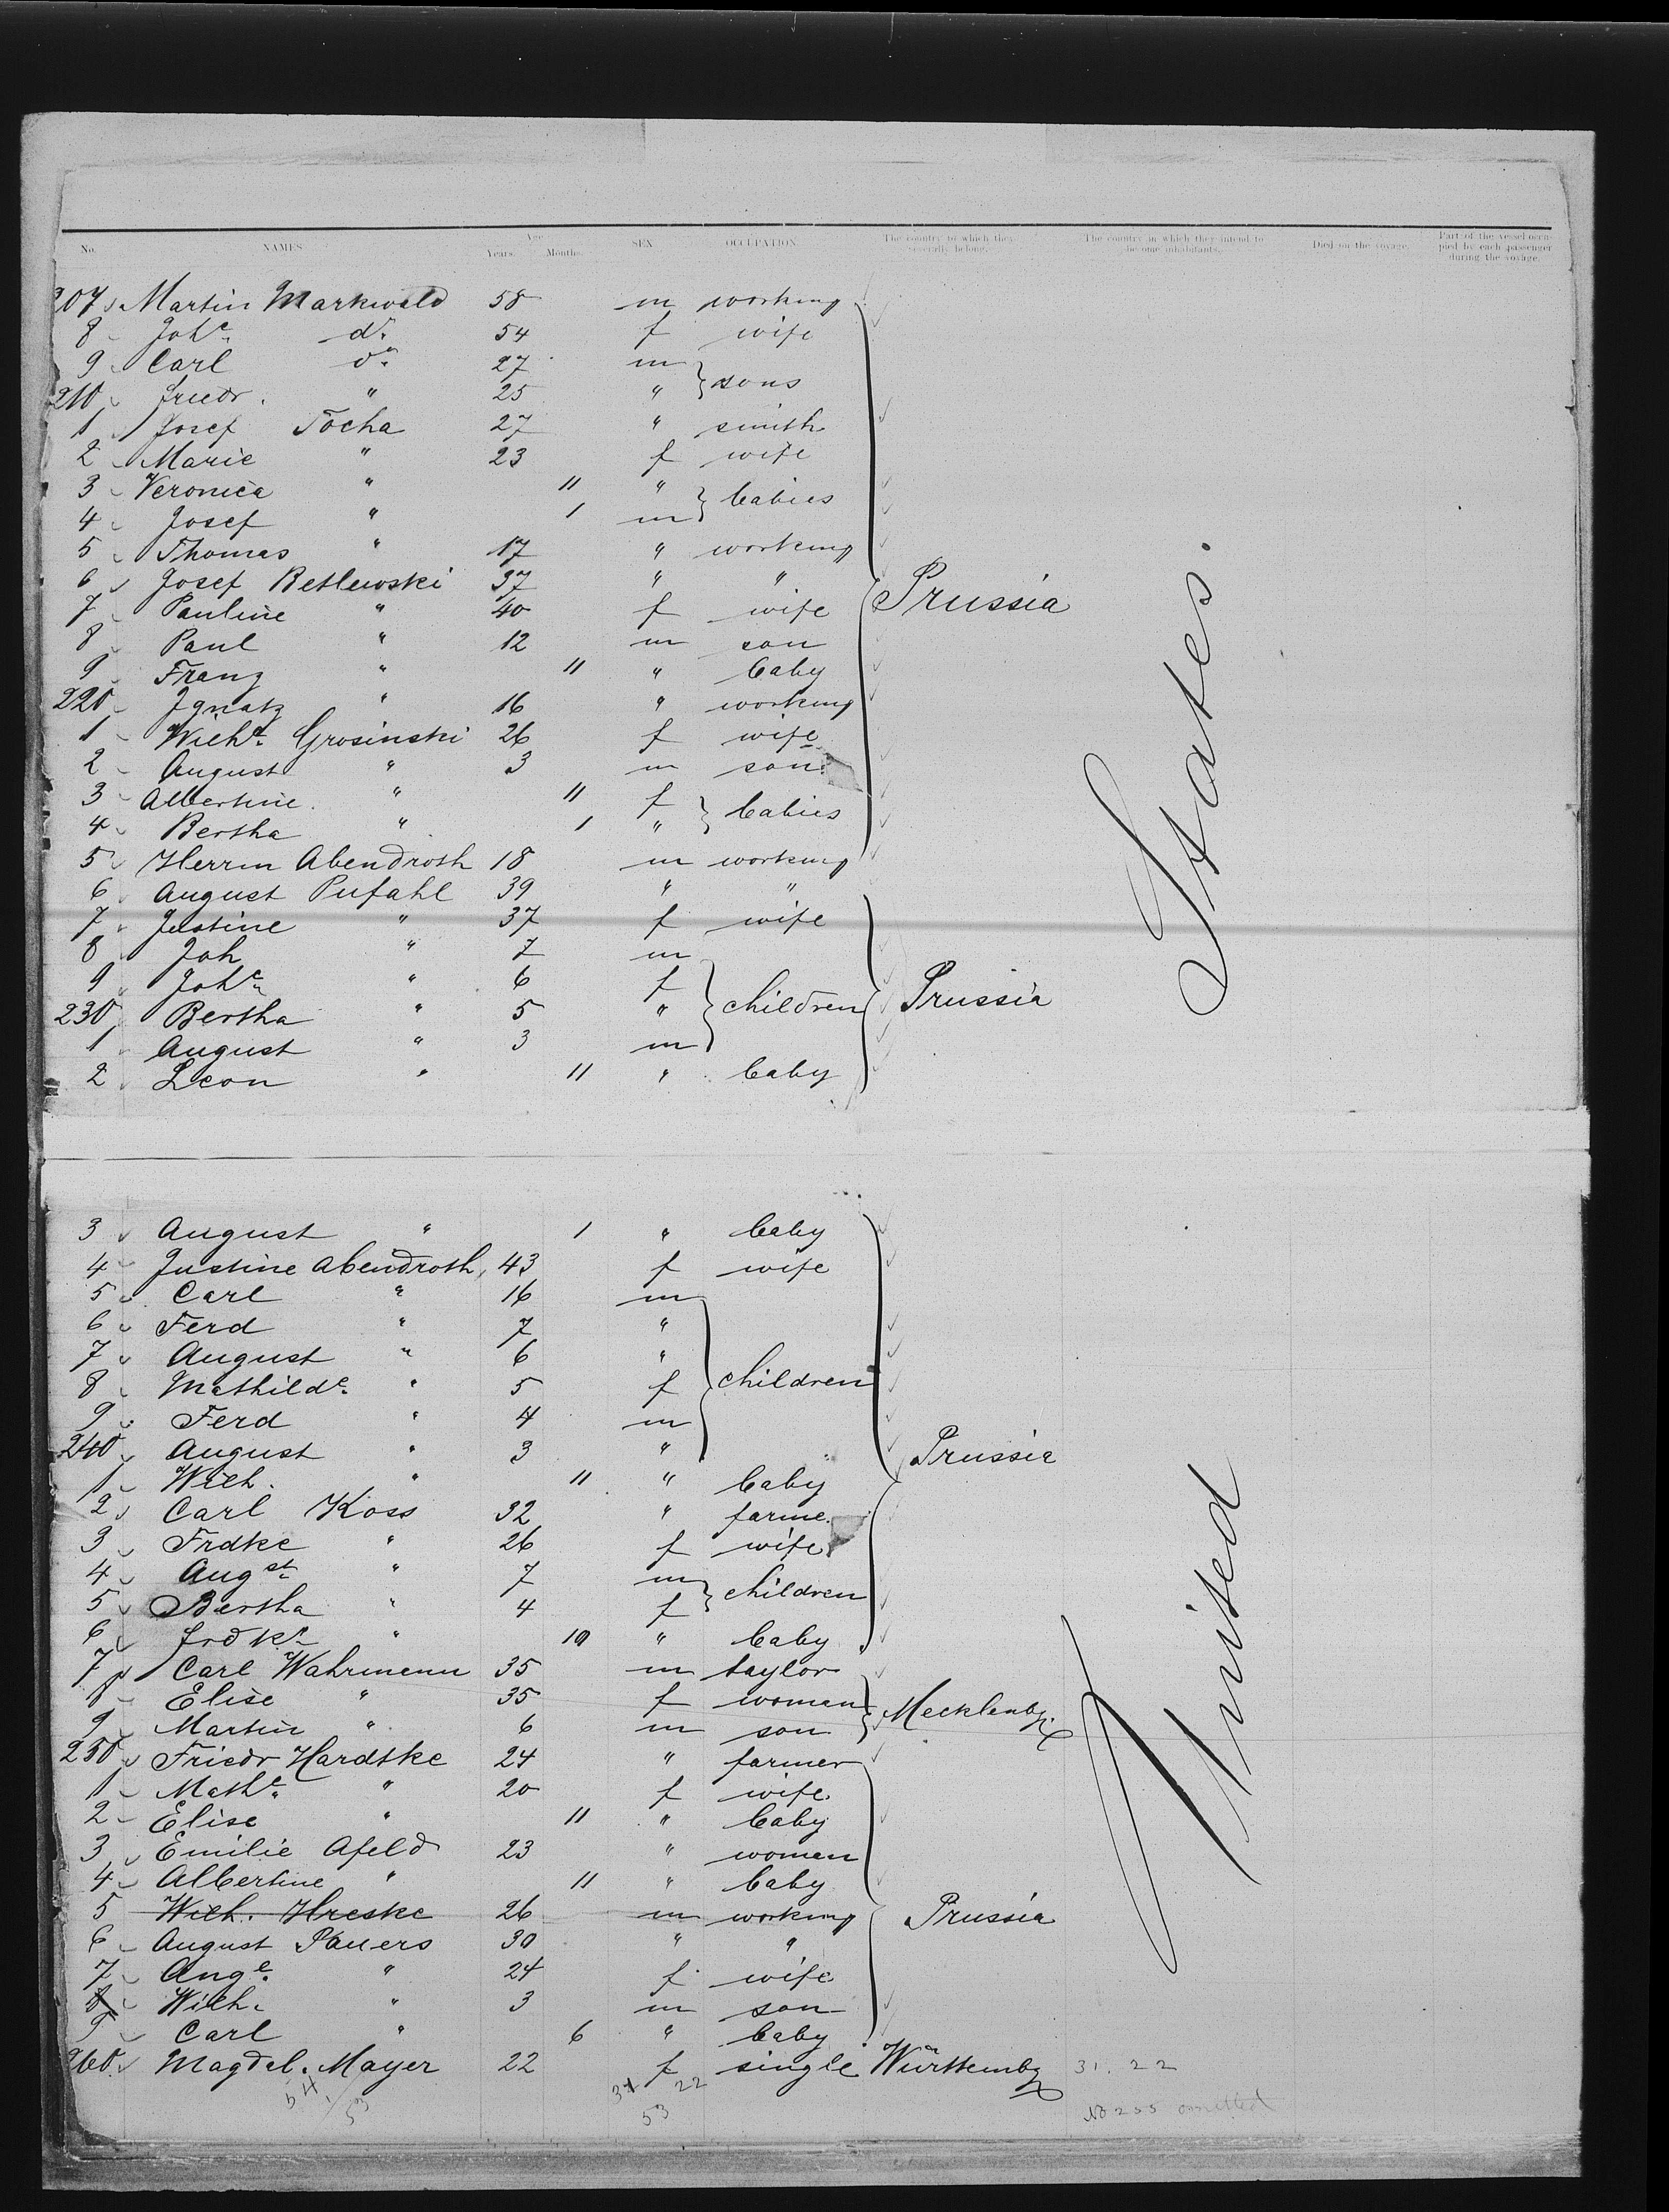 No. NAMES Age Years. Months. SEX OCCUPATION The country to which they severally belong. The country in which they intend to become inhabitants. Died on the voyage. Part of the vessel occupied by each passenger during the voyage.
207 Martin Markwald 58 m working
8 Johe do 54 f wife
9 Carl do 27 m
210 Friedr. " 25 " } sons
1 Josef Tocha 27 " smith
2 Marie " 23 f wife
3 Veronica " 11 "
4 Josef " 1 m } babies
5 Thomas " 17 " working
6 Josef Betlewski 37 " " Prussia
7 Pauline " 40 f wife
8 Paul " 12 m son
9 Franz " 11 " baby
220 Ignatz " 16 " working
1 Wilhe Grosinski 26 f wife
2 August " 3 m son
3 Albertine " 11 f
4 Bertha " 1 " } babies
5 Herrm Abendroth 18 m working
6 August Pufahl 39 " "
7 Justine " 37 f wife
8 Joh " 7 m
9 Johe " 6 f
230 Bertha " 5 " } children Prussia
1 August " 3 m
2 Leon " 11 " baby
3 August " 1 " baby
4 Justine Abendroth, 43 f wife
5 Carl " 16 m
6 Ferd " 7 "
7 August " 6 "
8 Mathilde " 5 f } children
9 Ferd " 4 m
240 August " 3 " Prussia
1 Wilh. " 11 " baby
2 Carl Koss 32 " farme
3 Frdke " 26 f wife
4 Augst " 7 m
5 Bertha " 4 f } children
6 Frdke " 10 " baby
7 Carl Wahrmenn 35 m taylor
8 Elise " 35 f woman } Mecklenbg.
9 Martin " 6 m son
250 Friedr Hardtke 24 " farmer
1 Mathe " 20 f wife
2 Elise " 11 " baby
3 Emilie Afeld 23 " women
4 Albertine " 11 " baby
5 Wilh. Hreske 26 m working Prussia
6 August Pauers 30 " "
7 Auge " 24 f wife
8 Wilh. " 3 m son
9 Carl " 6 " baby
260 Magdal. Mayer 22 f single Württembg 31. 22
54 / 53 31 22
53
No 255 omitted
United States.